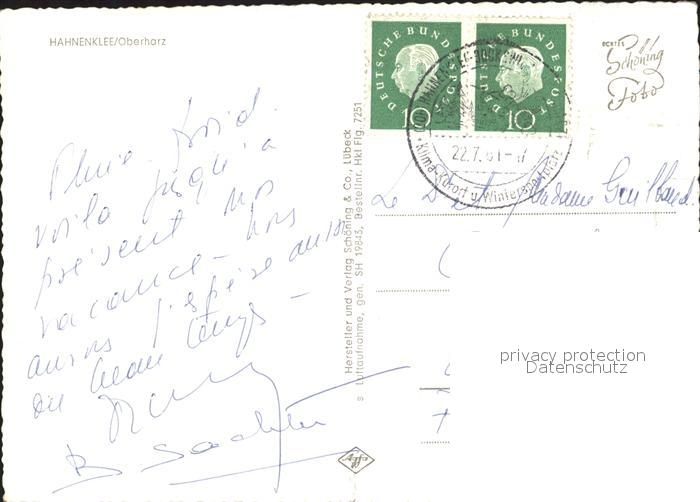 HAHNENKLEE/Oberharz
Pluie, froid,
voilà jusqu'à
présent nos
vacances - nous
aurons j'espère aussi
du beau temps -
B
Hersteller und Verlag Schöning & Co., Lübeck
s Luftaufnahme, gen. SH 19843, Bestellnr. Hkl Flg. 7251
Agfa
DEUTSCHE BUNDESPOST
10
DEUTSCHE BUNDESPOST
10
HAHNENKLEE-BOCKSWIESE
22.7.61-17
Klima-Kurort u. Wintersportplatz
ECHTES
Schöning
Foto
Le Dr et Madame
privacy protection
Datenschutz